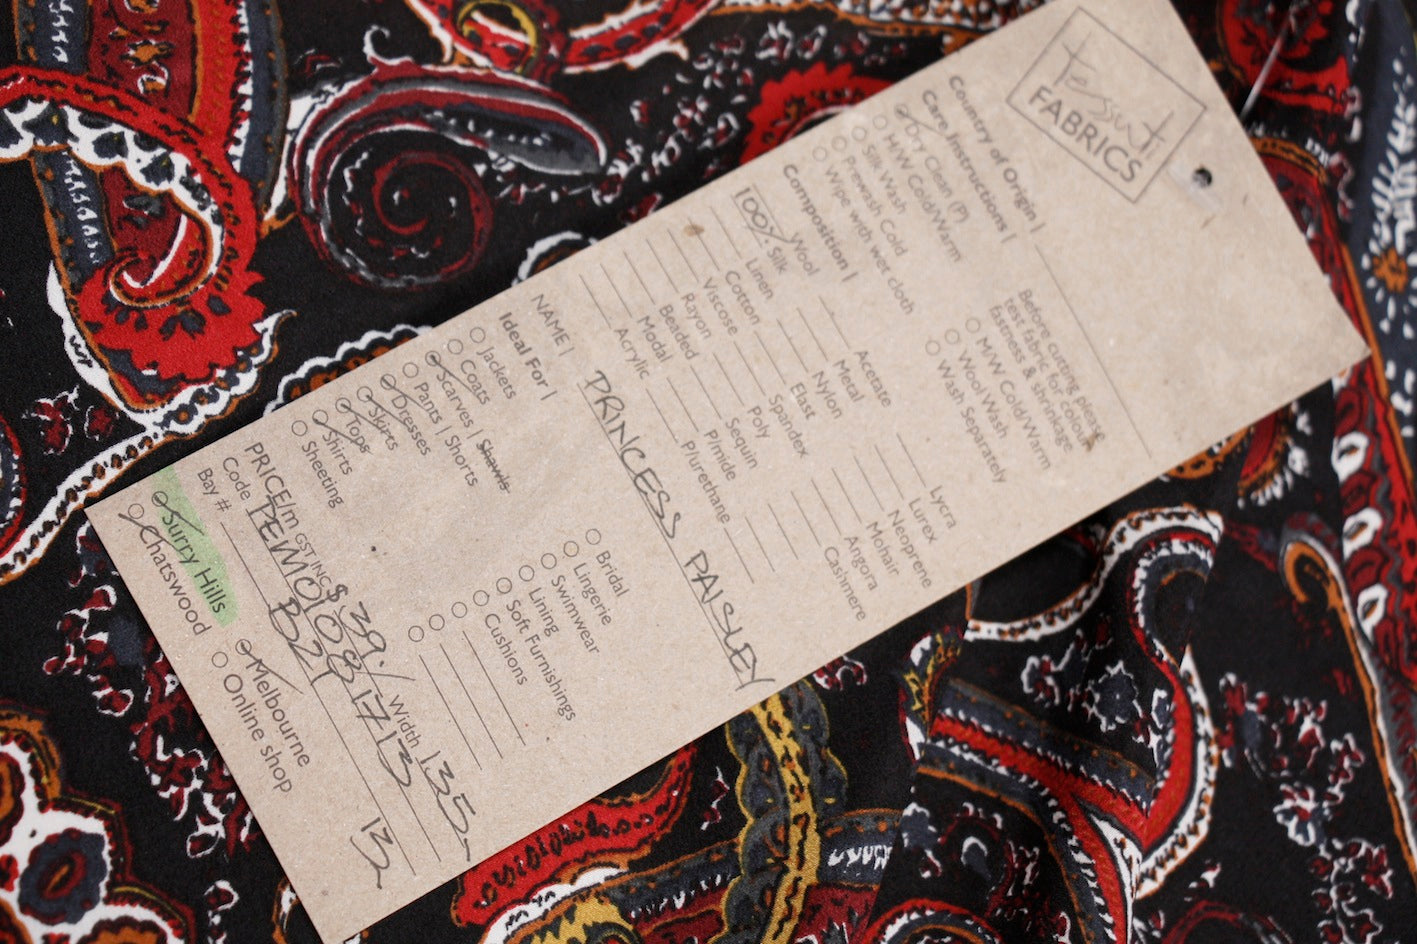 tessuti
FABRICS
Country of Origin |
Care Instructions |
Dry Clean (P)
H/W Cold/Warm
Silk Wash
Prewash Cold
Wipe with wer cloth
Before cutting please
test fabric for colour
fastness & shrinkage
M/W Cold/Warm
Wool Wash
Wash Separately
Composition |
Wool Acetate Lycra
100% Silk Metal Lurex
Linen Nylon Neoprene
Cotton Elast Mohair
Viscose Spandex Angora
Rayon Poly Cashmere
Beaded Sequin
Modal P/imide
Acrylic P/urethane
NAME | PRINCESS PAISLEY
Ideal For |
Jackets Bridal
Coats Lingerie
Scarves | Shawls Swimwear
Pants | Shorts Lining
Dresses Soft Furnishings
Skirts Cushions
Tops
Shirts
Sheeting
PRICE/m GST INC $39. Width 135
Code
Bay # B21 13
Surry Hills Melbourne
Chatswood Online shop